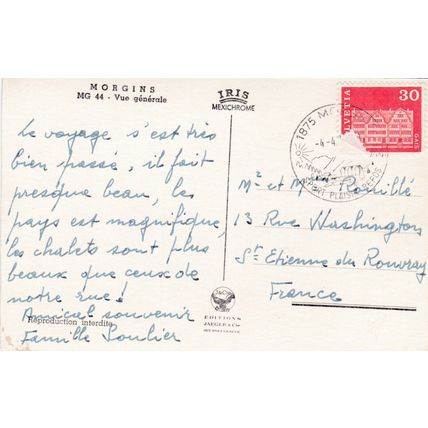 MORGINS
MG 44 - Vue générale
IRIS
MEXICHROME
HELVETIA
30
GAIS
1875 MO
-4.-4
SPORT PLAISIR REPOS
Le voyage s'est très
bien passé, il fait
presque beau, le
pays est magnifique,
les chalets sont plus
beaux que ceux de
notre rue!
Amical souvenir
Famille Soulier
Reproduction interdite
Mr et M Rouillé
13 Rue Washington
St Etienne du Rouvray
France
J&Cie
EDITIONS
JAEGER & Cie